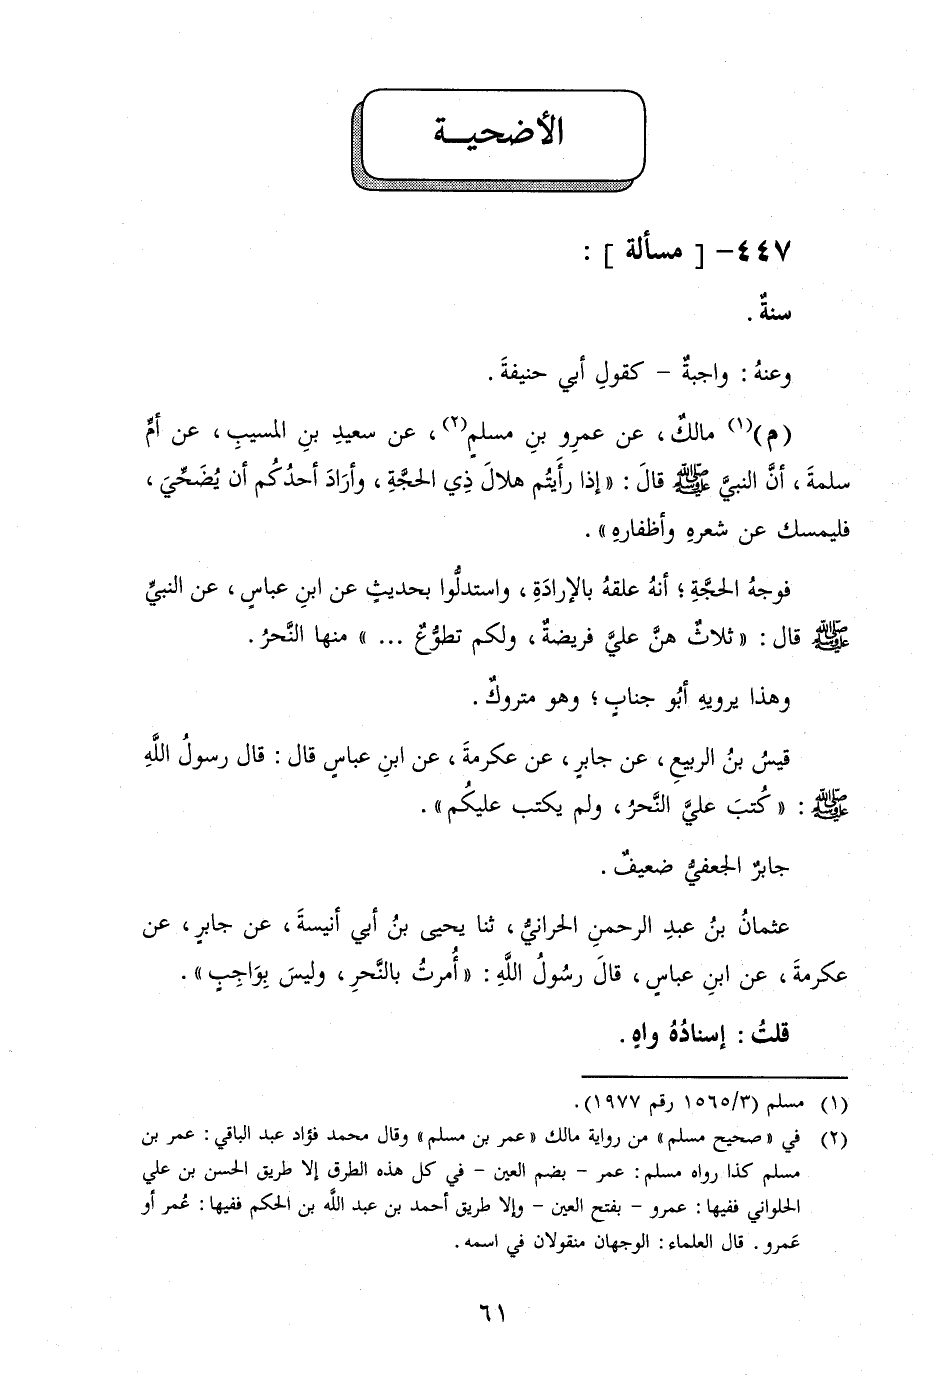 الأضحيـــة
٤٤٧- [ مسألة ] :
سنةٌ .
وعنهُ : واجبةٌ – كقولِ أبي حنيفةَ .
(م)(١) مالكٌ، عن عمرِو بنِ مسلمٍ(٢)، عن سعيدِ بنِ المسيبِ، عن أمِّ
سلمةَ، أنَّ النبيَّ ﷺ قالَ : «إذا رأَيتُم هلالَ ذِي الحجَّةِ، وأرَادَ أحدُكُم أن يُضَحِّيَ،
فليمسك عن شعرهِ وأظفارهِ» .
فوجهُ الحجَّةِ؛ أنهُ علقهُ بالإرادَةِ، واستدلُّوا بحديثٍ عن ابنِ عباسٍ، عن النبيِّ
ﷺ قال : «ثلاثٌ هنَّ عليَّ فريضةٌ، ولكم تطوُّعٌ ...» منها النَّحرُ .
وهذا يرويهِ أبُو جنابٍ؛ وهو متروكٌ .
قيسُ بنُ الربيعِ، عن جابرٍ، عن عكرمةَ، عن ابنِ عباسٍ قال : قال رسولُ اللَّهِ
ﷺ : «كُتبَ عليَّ النَّحرُ، ولم يكتب عليكُم» .
جابرٌ الجعفيُّ ضعيفٌ .
عثمانُ بنُ عبدِ الرحمنِ الحرانيُّ، ثنا يحيى بنُ أبي أنيسةَ، عن جابرٍ، عن
عكرمةَ، عن ابنِ عباسٍ، قالَ رسُولُ اللَّهِ : «أُمرتُ بالنَّحرِ، وليسَ بِوَاجِبٍ» .
قلتُ : إسنادُهُ واهٍ .
(١) مسلم (١٥٦٥/٣ رقم ١٩٧٧).
(٢) في «صحيح مسلم» من رواية مالك «عمر بن مسلم» وقال محمد فؤاد عبد الباقي : عمر بن
مسلم كذا رواه مسلم : عمر – بضم العين – في كل هذه الطرق إلا طريق الحسن بن علي
الحلواني ففيها : عمرو – بفتح العين – وإلا طريق أحمد بن عبد اللَّه بن الحكم ففيها : عُمر أو
عَمرو . قال العلماء : الوجهان منقولان في اسمه .
٦١